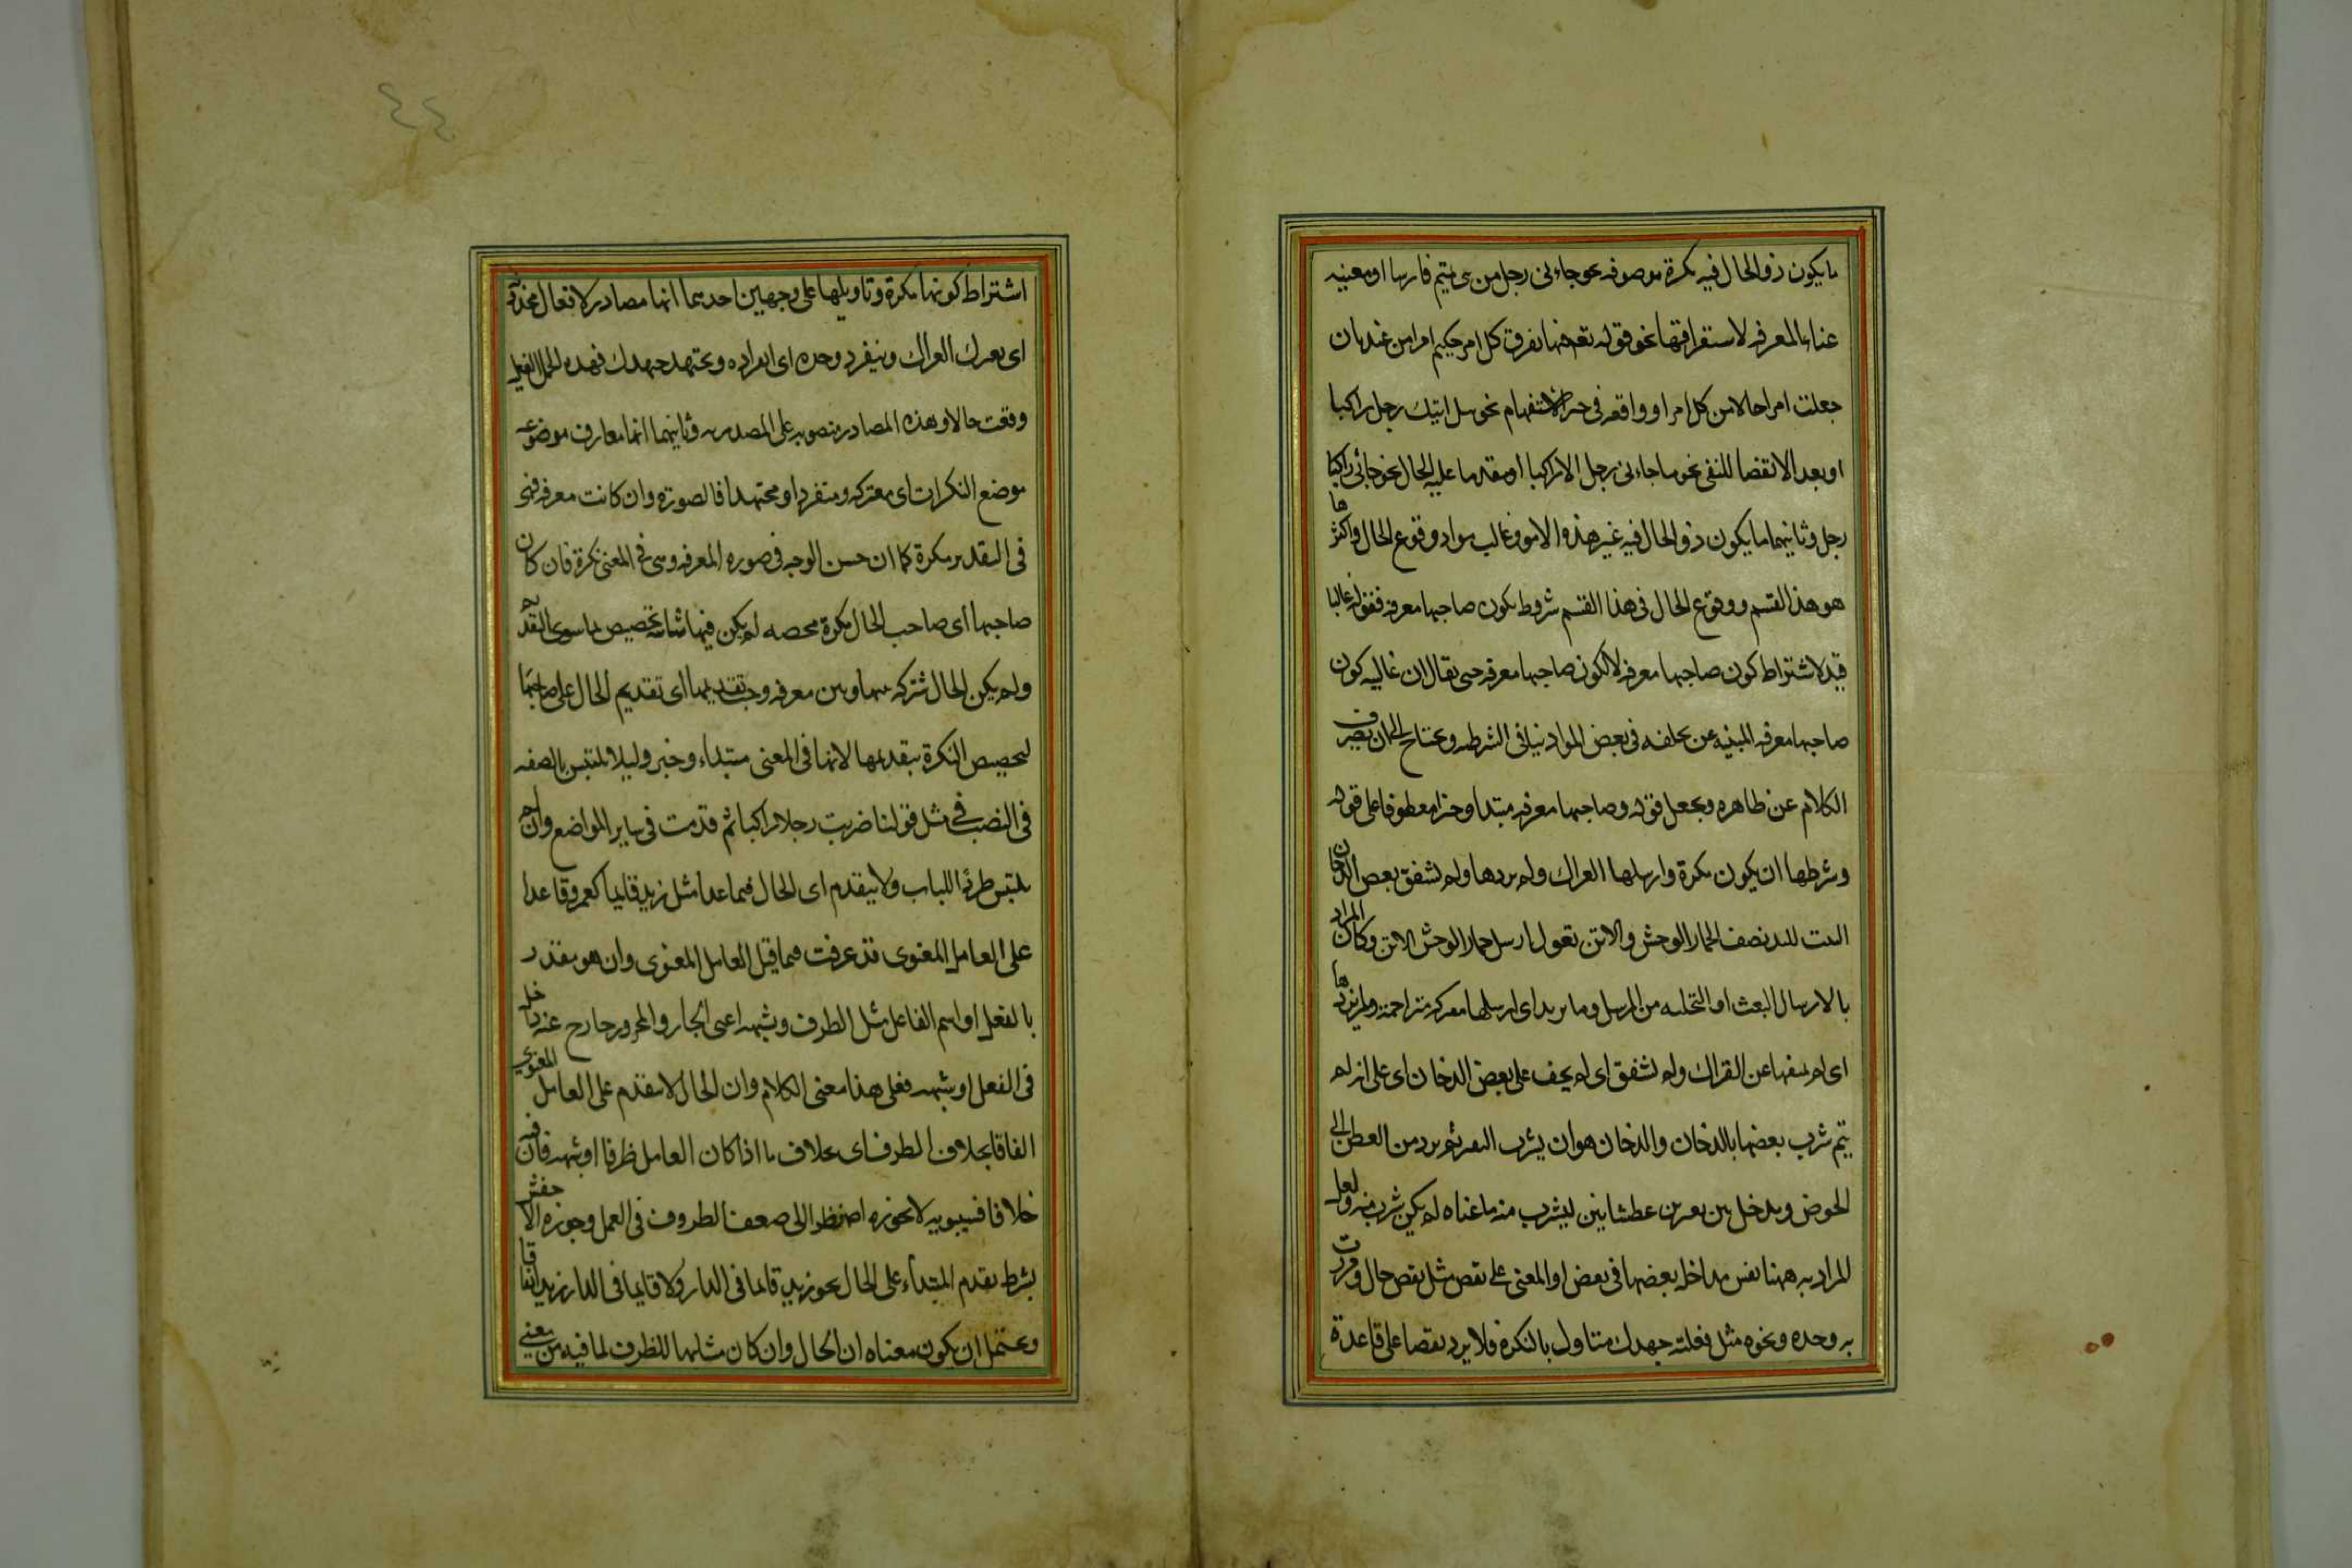 ما يكون ذو الحال فيه نكرة موصوفه نحو جاءنى رجل من بنى تميم فارسا او مغنيه
غناء المعرفه لاستغراقها نحو قوله تعه فيها يفرق كل امر حكيم امرا من عندنا ان
جعلت امرا حالا من كل امر او واقعه فى حيز الاستفهام نحو هل اتيك رجل راكبا
او بعد الا نقضا للنفى نحو ما جاءنى رجل الا راكبا او مقدما عليه الحال نحو جائى راكبا
رجل وثانيهما ما يكون ذو الحال فيه غير هذه الامور وغالب مواد وقوع الحال واكثرها
هو هذا القسم ووقوع الحال فى هذا القسم شروط بكون صاحبها معرفه فقوله غالبا
قيد لاشتراط كون صاحبها معرفه لا لكون صاحبها معرفه حتى يقال ان غالبيه كون
صاحبها معرفه المبنيه عن تخلفه فى بعض المواد ينافى الشرطيه ويحتاج الى ان يصرف
الكلام عن ظاهره ويجعل قوله وصاحبها معرفه مبتدا وخبرا معطوفا على قوله
وشرطها ان يكون نكرة وارسلها العراك ولم يردها ولم يشفق بعض الدخان
البيت للبيد يصف الحمار الوحش والاتن تقول ارسل حمار الوحش الاتن وكان المراد
بالارسال البعث او التخليه من المرسل وما يريد اى ارسلها معتركه متزاحمة ولم يردها
اى لم يمنعها عن العراك ولم يشفق اى لم يخف على بعض الدخان اى على انه لم
يتم شرب بعضها بالدخان والدخان هو ان يشرب البعير ثم يرد من العطن الى
الحوض ويدخل بين بعيرين عطشانين ليشرب منه ما عناه لم يكن شرب منه ولعل
المراد به ههنا نفس مداخله بعضها فى بعض او المعنى على نغص مثل نغص حال ومررت
به وحده ونحوه مثل فعلته جهدك متاول بالنكرة فلا يرد نقصا على قاعدة
٤٤
اشتراط كونها نكرة وتاويلها على وجهين احديهما انها مصادر لافعال محذوفه
اى يعترك العراك وينفرد وحده اى انفراده ويجتهد جهدك فهذه الجمل الفعليه
وقعت حالا وهذه المصادر منصوبه على المصدريه وثانيهما انها معارف موضوعه
موضع النكرات اى معتركه ومنفردا ومجتهدا فالصورة وان كانت معرفه فهى
فى التقدير نكرة كما ان حسن الوجه فى صوره المعرفه وهى فى المعنى نكرة فان كان
صاحبها اى صاحب الحال نكرة محضه لم يكن فيها شائبه تخصيص بما سوى التقديم
ولم يكن الحال مشتركه بينها وبين معرفه وجب تقديمها اى تقديم الحال على صاحبها
لتخصيص النكرة بتقديمها لانها فى المعنى مبتداء وخبر وليلا يلتبس بالصفه
فى النصب فى مثل قولنا ضربت رجلا راكبا ثم قدمت فى ساير المواضع وان لم
يلتبس طردا للباب ولا يتقدم اى الحال فيما عدا مثل زيد قائما كعمرو قاعدا
على العامل المعنوى قد عرفت فيما قبل العامل المعنوى وان هو مقدر
بالفعل او اسم الفاعل مثل الظرف وشبهه اعنى الجار والمجرور خارج عنه داخل
فى الفعل او شبهه فعلى هذا معنى الكلام وان الحال لا يتقدم على العامل المعنوى
اتفاقا بخلاف الظرف اى بخلاف ما اذا كان العامل ظرفا او شبهه فان فيه
خلافا فسيبويه لا يجوزه اصلا نظرا الى ضعف الظروف فى العمل وجوزه الاخفش
بشرط تقدم المبتداء على الحال نحو زيد قائما فى الدار ولا قائما فى الدار زيد اتفاقا
ويحتمل ان يكون معناه ان الحال وان كان مشابها للظرف لما فيه من معنى